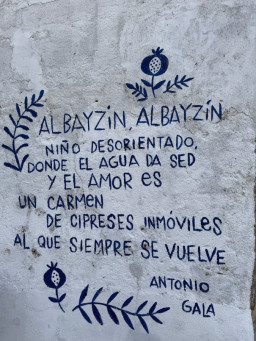 ALBAYZÍN, ALBAYZÍN
NIÑO DESORIENTADO,
DONDE EL AGUA DA SED
Y EL AMOR es
UN CARMEN
DE CIPRESES INMÓVILES
AL QUE SIEMPRE SE VUELVE
ANTONIO
GALA